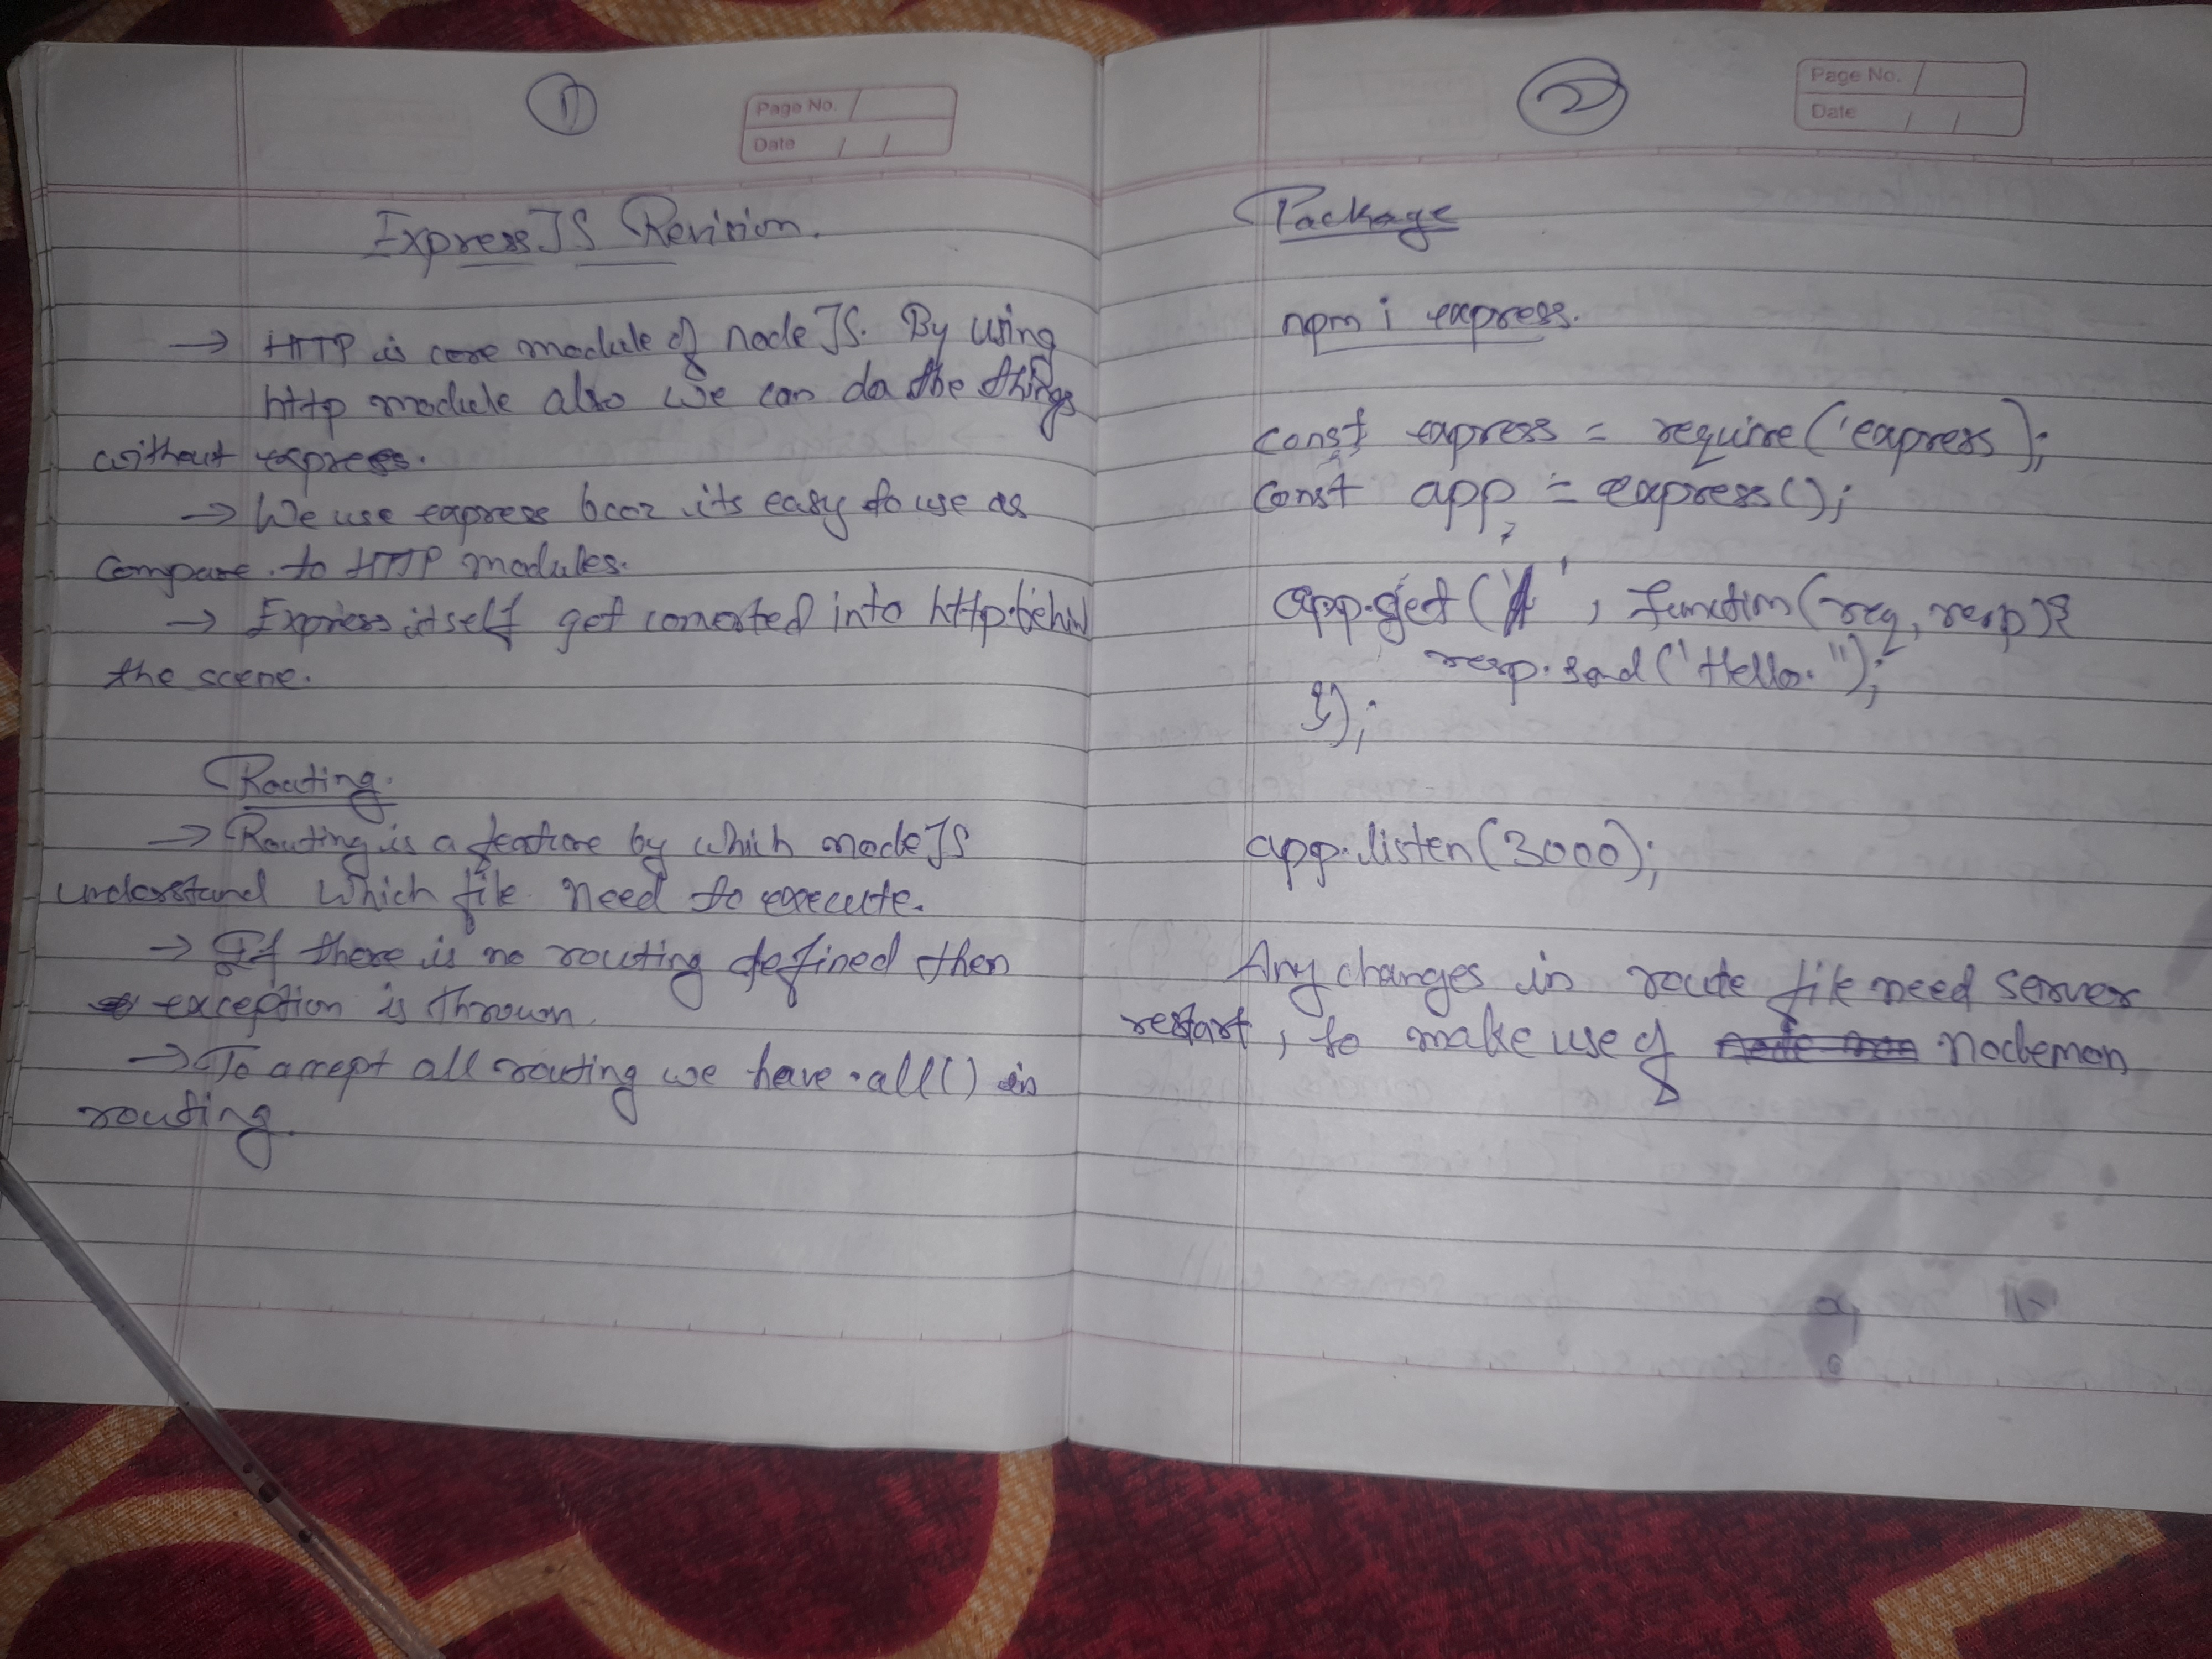 1
Page No.
Date / /
ExpressJS Revision.
→ HTTP is core module of node JS. By using
http module also we can do the things
without express.
→ We use express bcoz its easy to use as
compare to HTTP modules.
→ Express itself get converted into http behind
the scene.
Routing.
→ Routing is a feature by which nodeJS
understand which file need to execute.
→ If there is no routing defined then
exception is thrown.
→ To accept all routing we have .all() in
routing.
2
Page No.
Date / /
Package
npm i express.
const express = require('express);
const app = express();
app.get('/', function(req, resp){
resp.send('Hello.");
});
app.listen(3000);
Any changes in route file need server
restart, to make use of nodemon